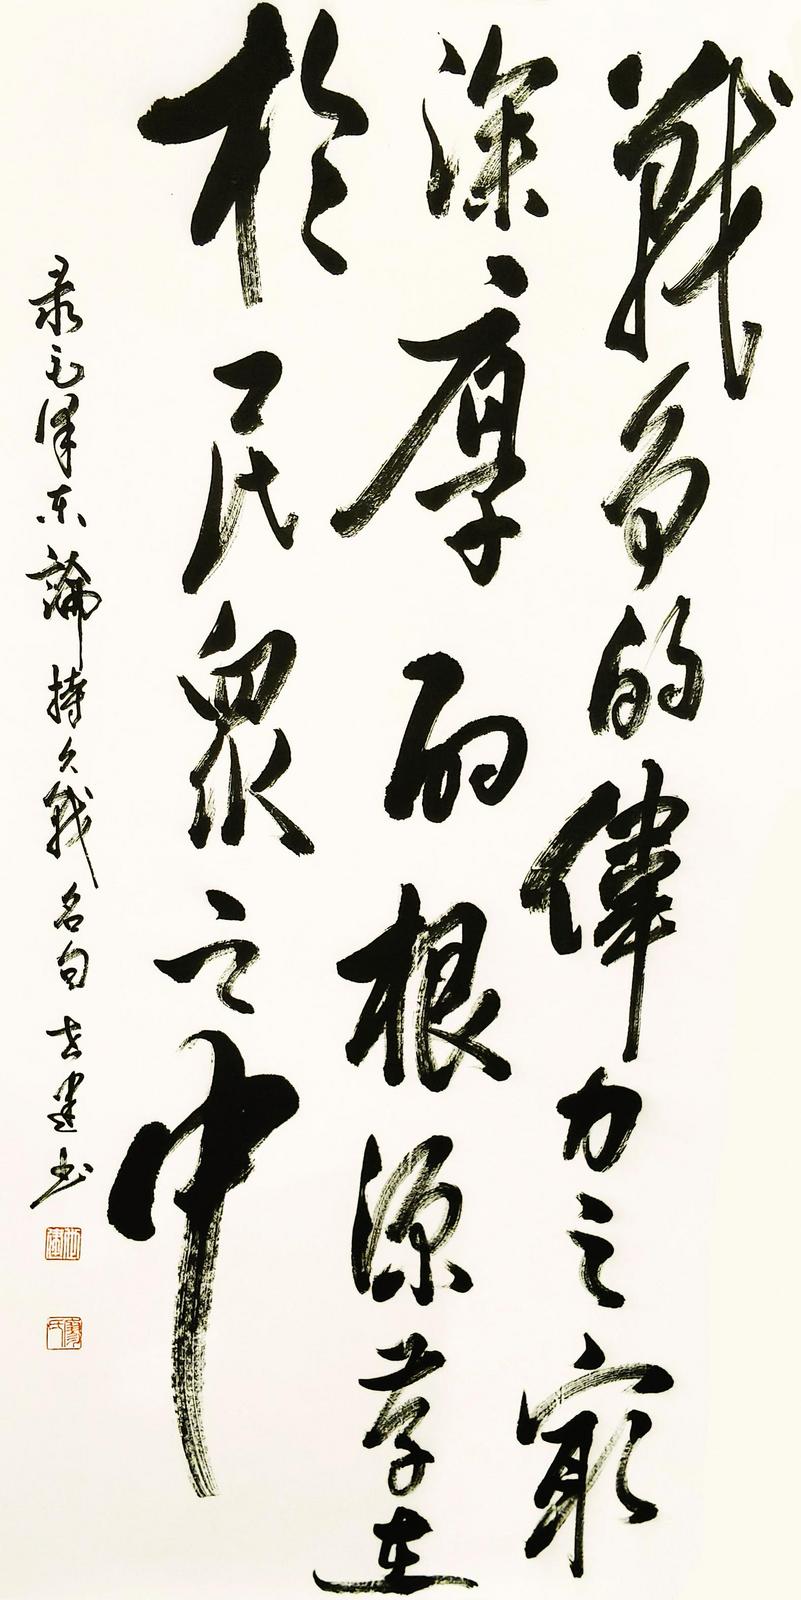 戰爭的偉力之最
深厚的根源存在
於民衆之中
录毛澤东論持久戰名句 建书